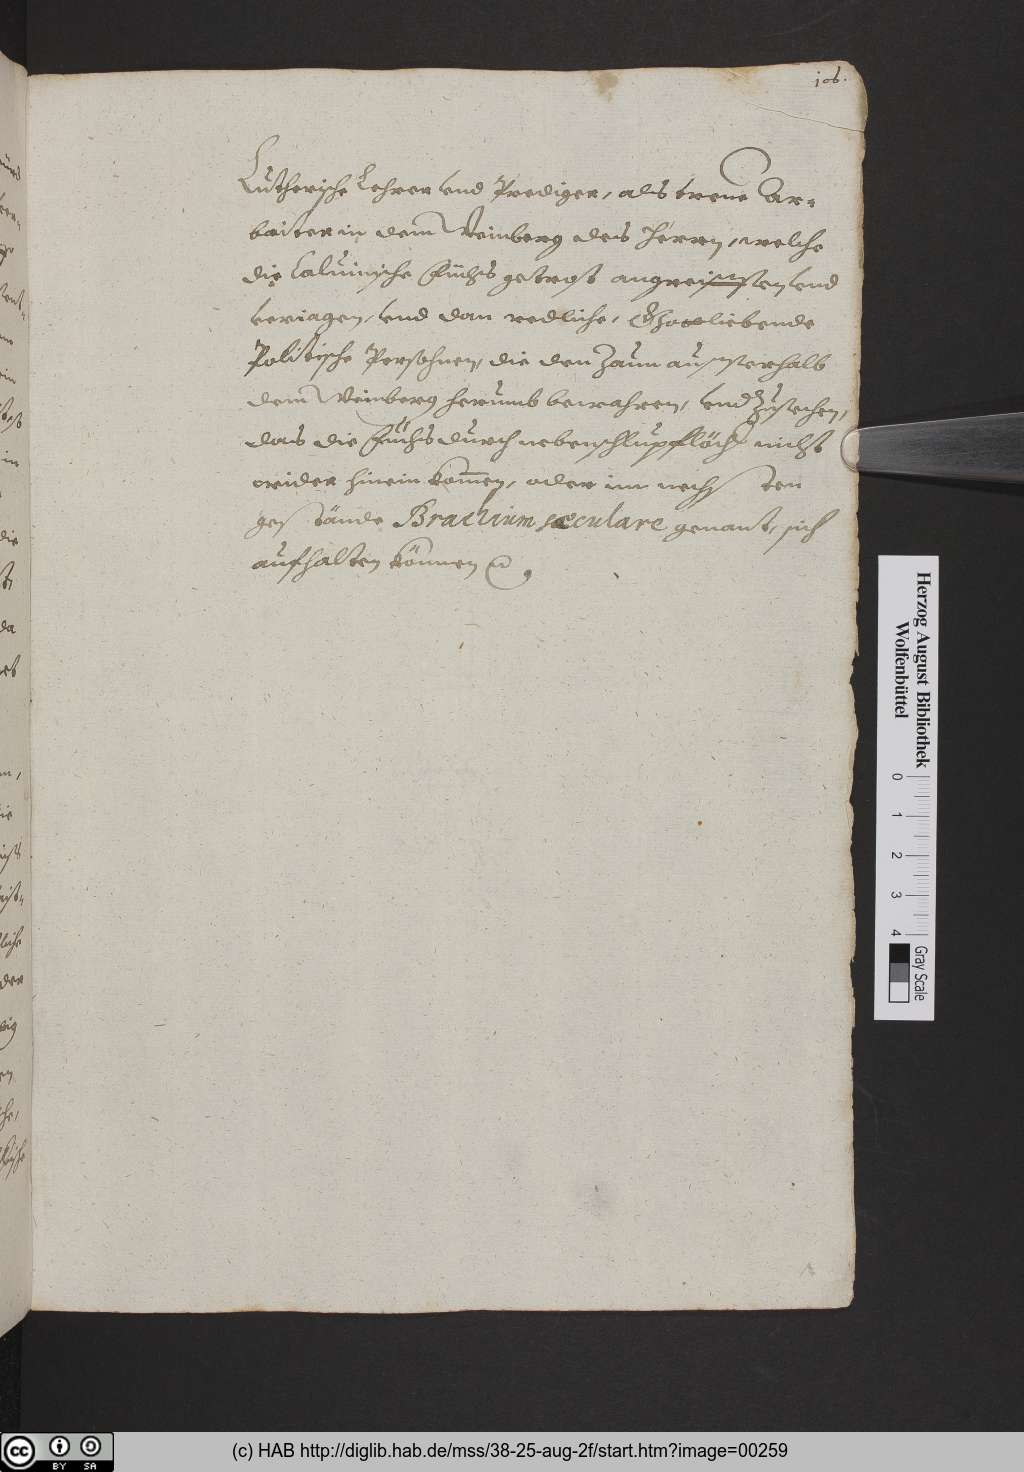 106.
Lutherische Lehrer vnd Prediger, als treue Ar-
baiter in dem Weinberg des Herrn, welche
die Caluinische Füchs getrost angreiffen vnd
veriagen, vnd dan redliche, Gottliebende
Politische Persohnen, die den Zaun ausserhalb
dem Weinberg herumb bewahren, vnd Zusechen,
das die Füchs durch nebenschlupflöcher nicht
wider hinein kommen, oder im nechsten
gestände Brachium sæculare genant, sich
aufhalten können
Herzog August Bibliothek
Wolfenbüttel
0 1 2 3 4
Gray Scale
cc BY SA
(c) HAB http://diglib.hab.de/mss/38-25-aug-2f/start.htm?image=00259